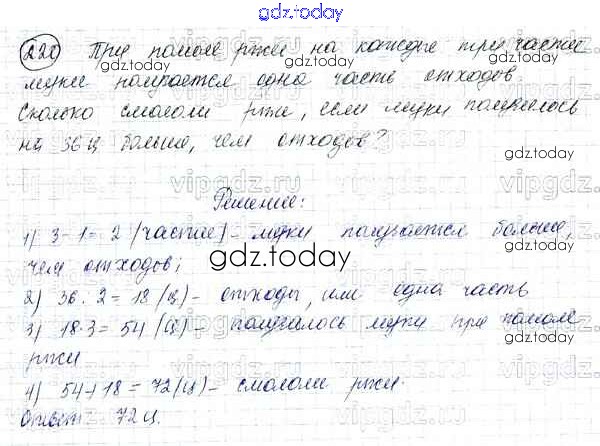 gdz.today
220 При помоле ржи на каждые три части
муки получается одна часть отходов.
Сколько смололи ржи, если муки получилось
на 36 ц больше, чем отходов?
gdz.today
Решение:
1) 3 - 1 = 2 (части) - муки получается больше,
чем отходов;
gdz.today
2) 36 : 2 = 18 (ц) - отходы, или одна часть
3) 18 · 3 = 54 (ц) - получалось муки при помоле
ржи
4) 54 + 18 = 72 (ц) - смололи ржи.
Ответ 72 ц.
gdz.today